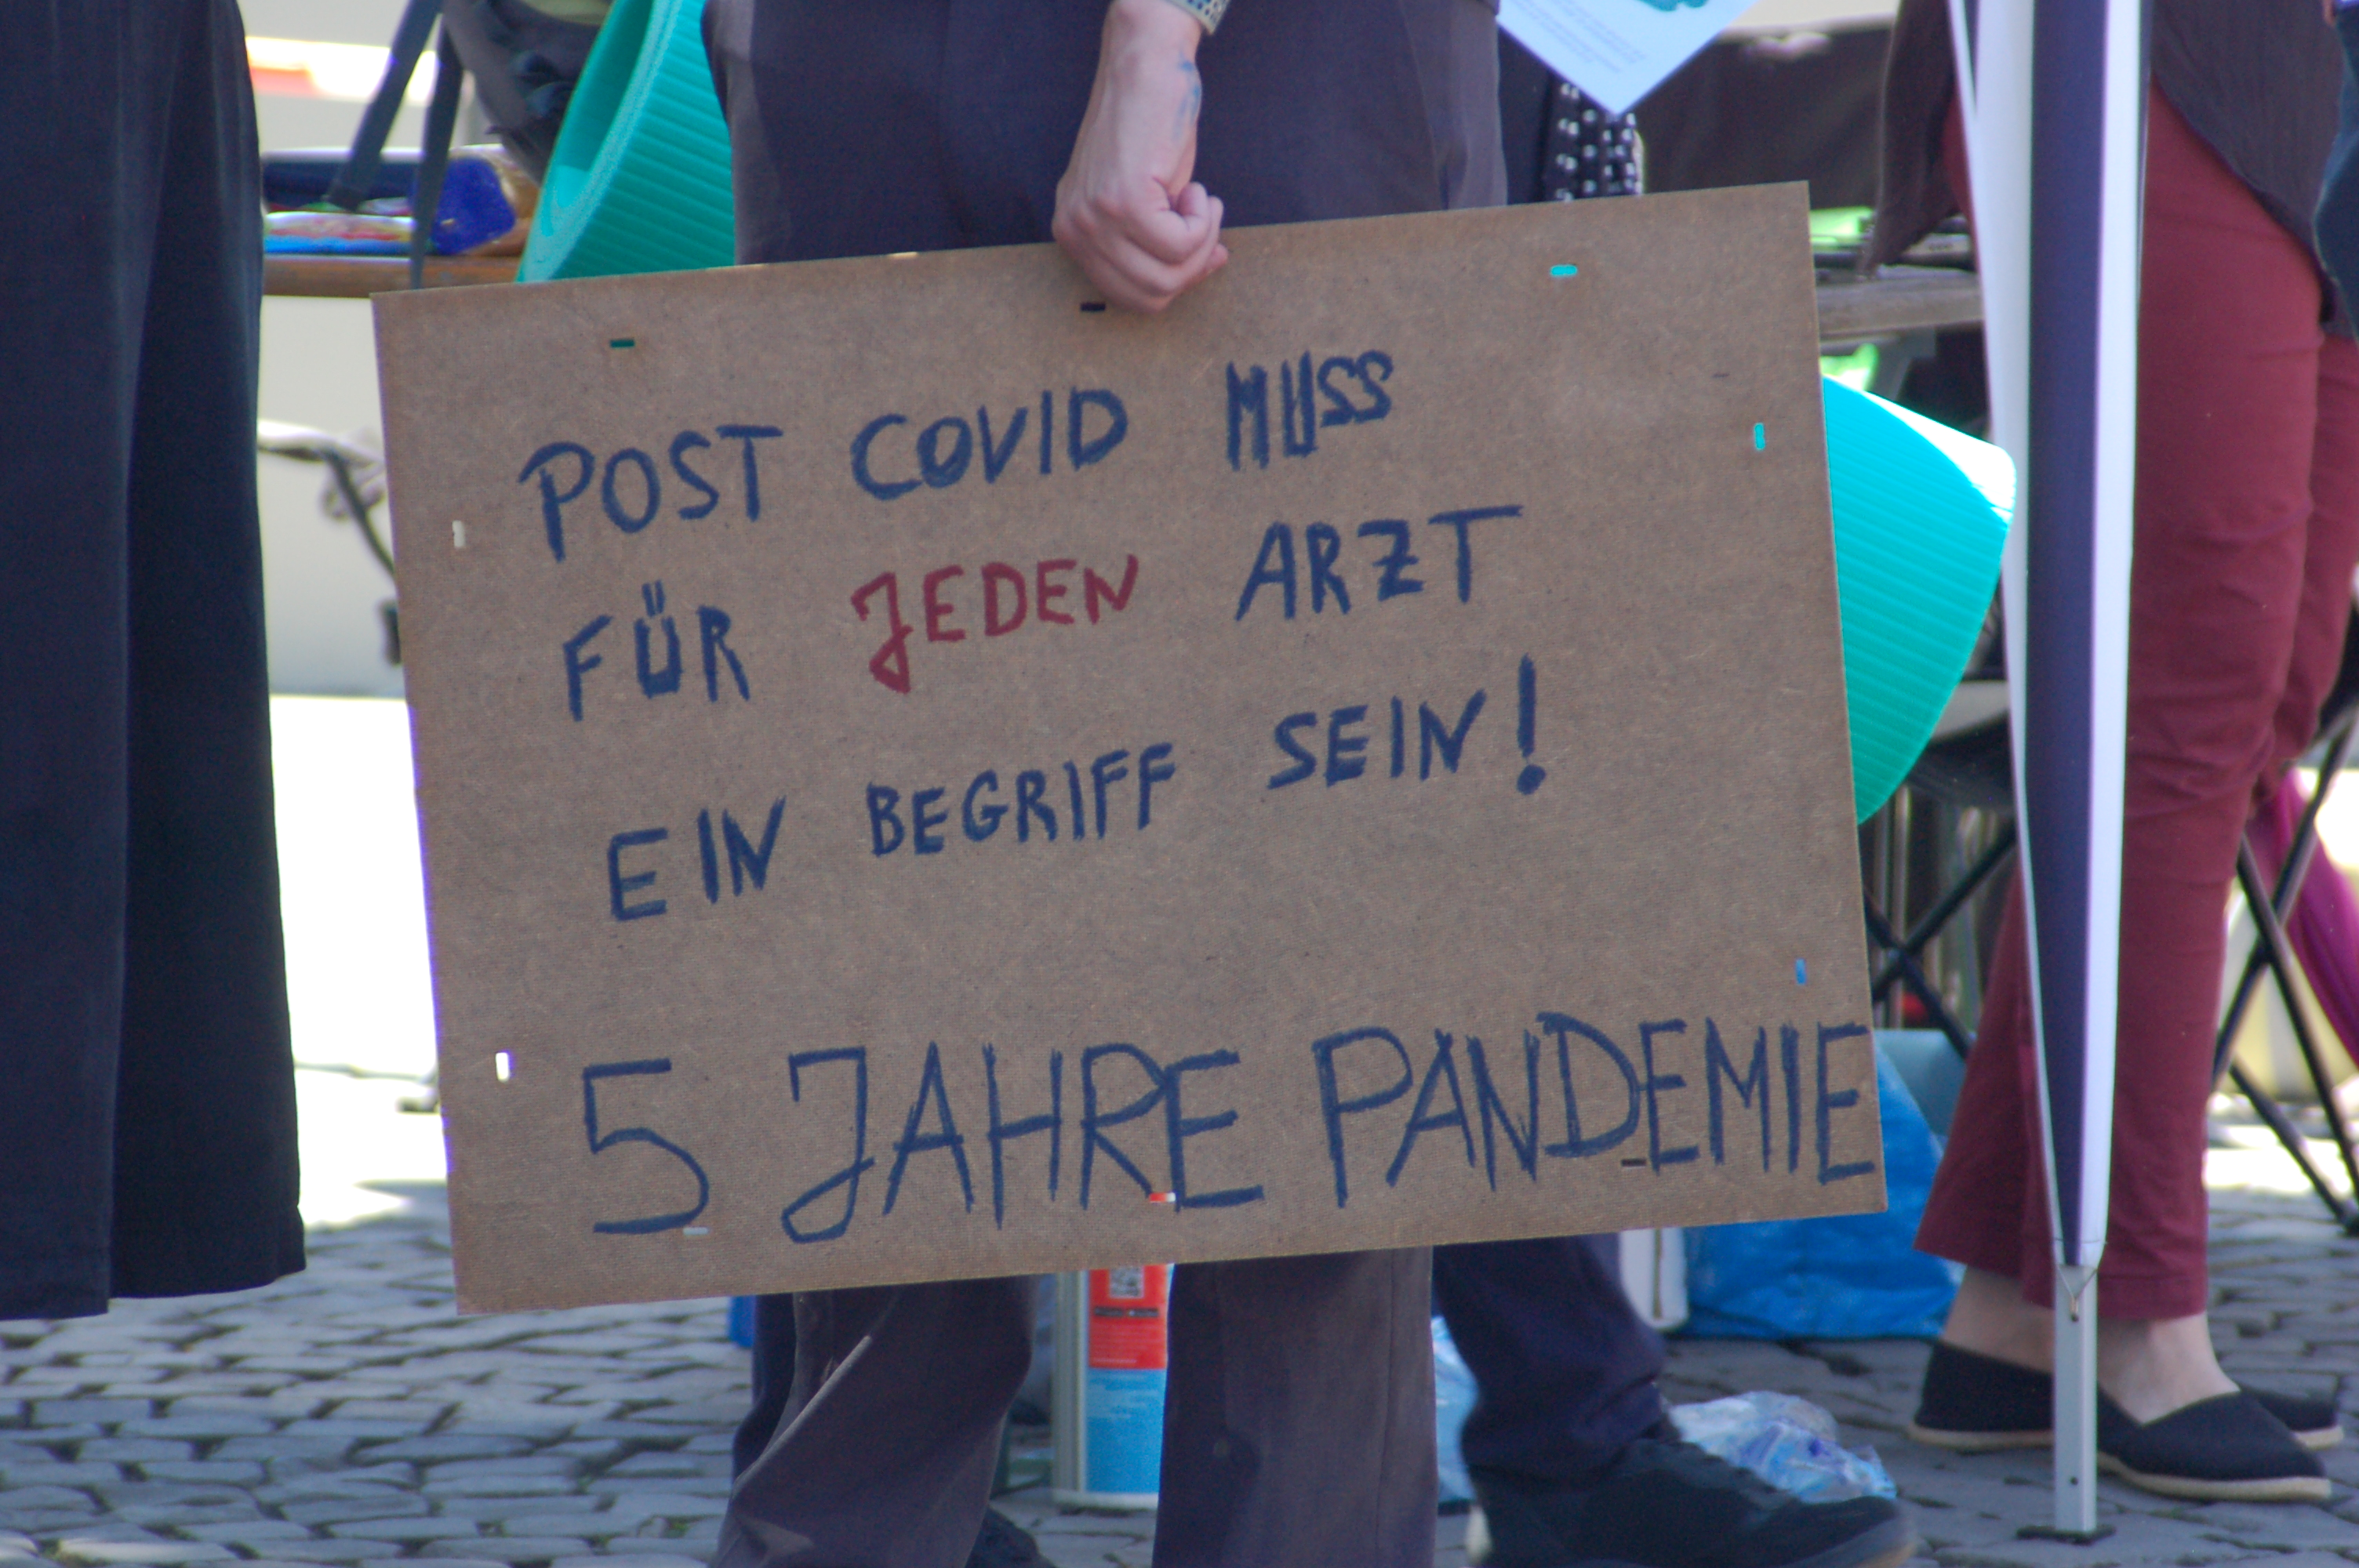 POST COVID MUSS
FÜR JEDEN ARZT
EIN BEGRIFF SEIN!
5 JAHRE PANDEMIE